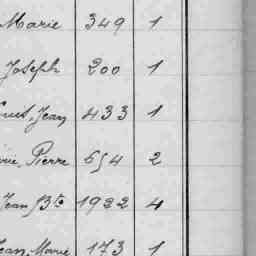 Marie 349 1
Joseph 200 1
Jean 433 1
Pierre 654 2
Jean Bte 1922 4
Jean, Marie 173 1